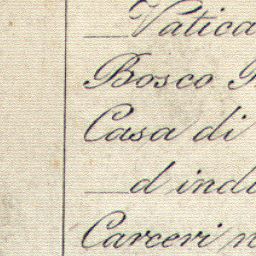 Vatica
Bosco P
Casa di
d indu
Carceri n